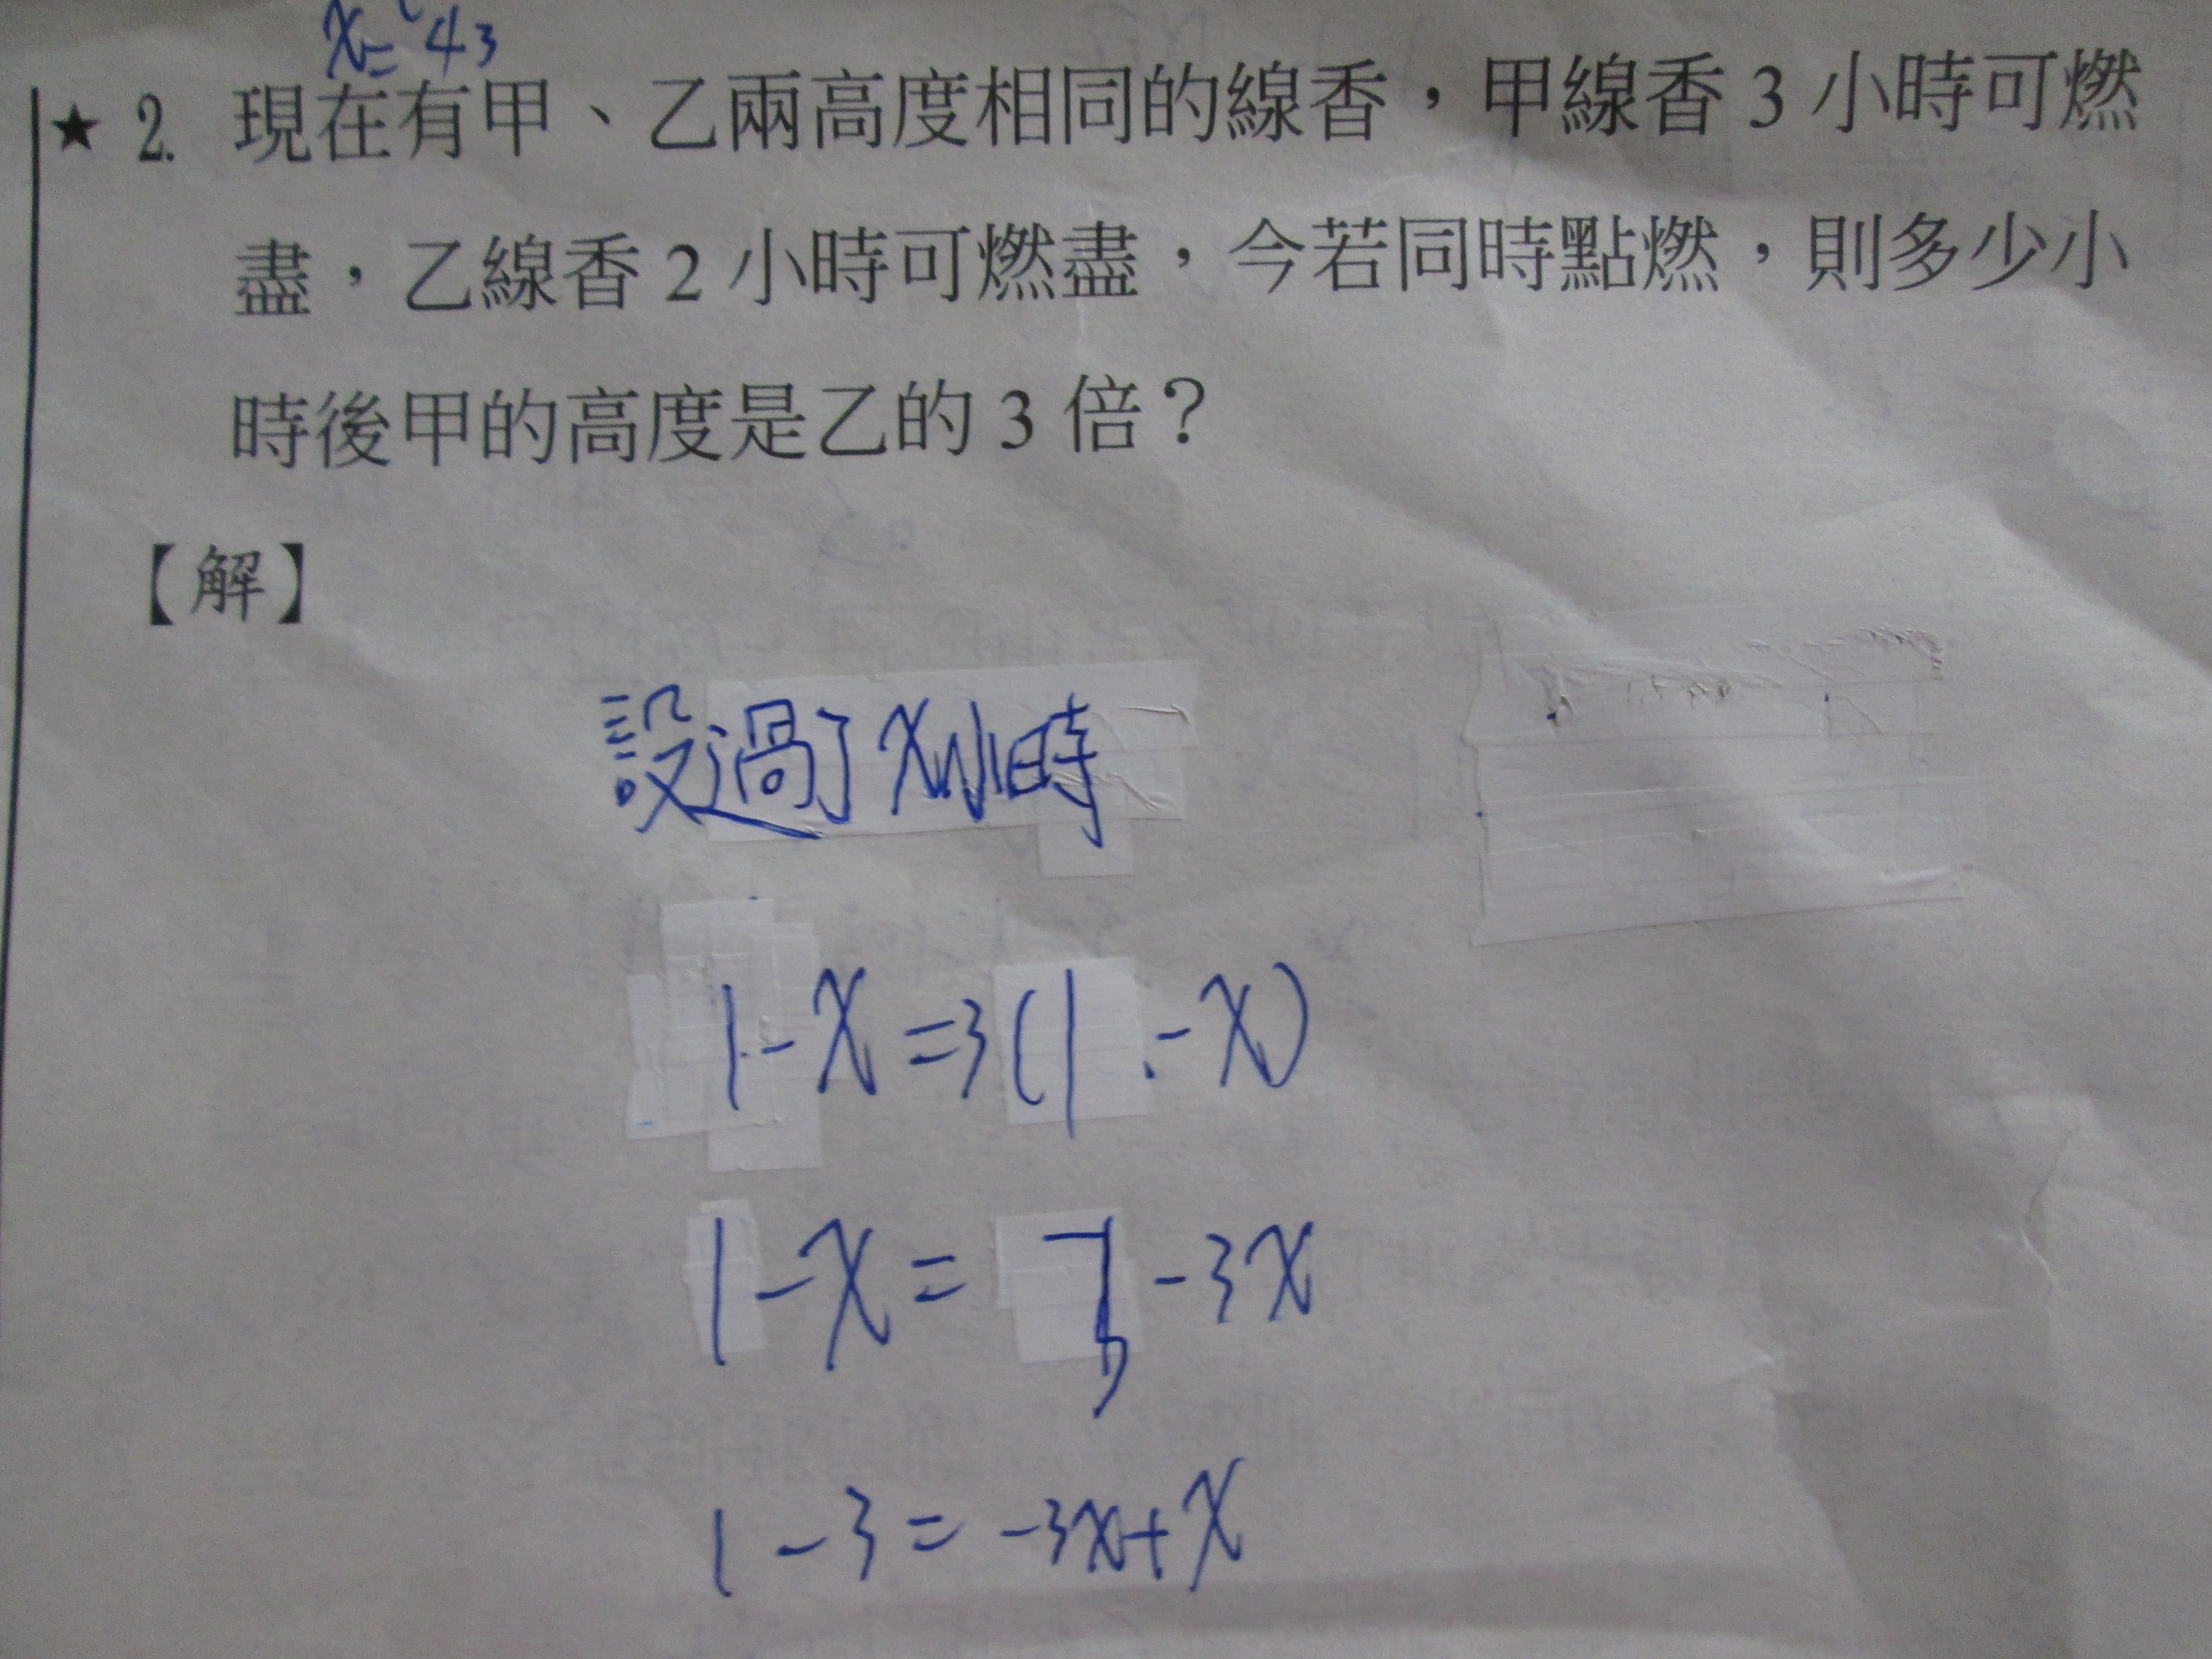 x=43
★ 2. 現在有甲、乙兩高度相同的線香，甲線香 3 小時可燃
盡，乙線香 2 小時可燃盡，今若同時點燃，則多少小
時後甲的高度是乙的 3 倍？
【解】
設過了x小時
1-x=3(1-x)
1-x=3-3x
1-3=-3x+x